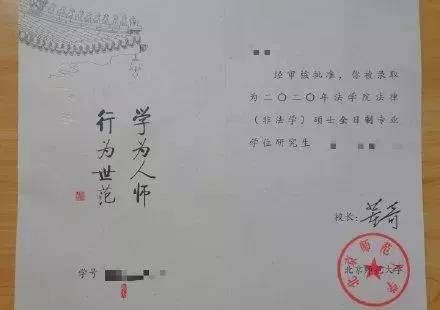 学为人师
行为世范
学号
经审核批准，你被录取
为二〇二〇年法学院法律
（非法学）硕士全日制专业
学位研究生
校长：董奇
北京师范大学